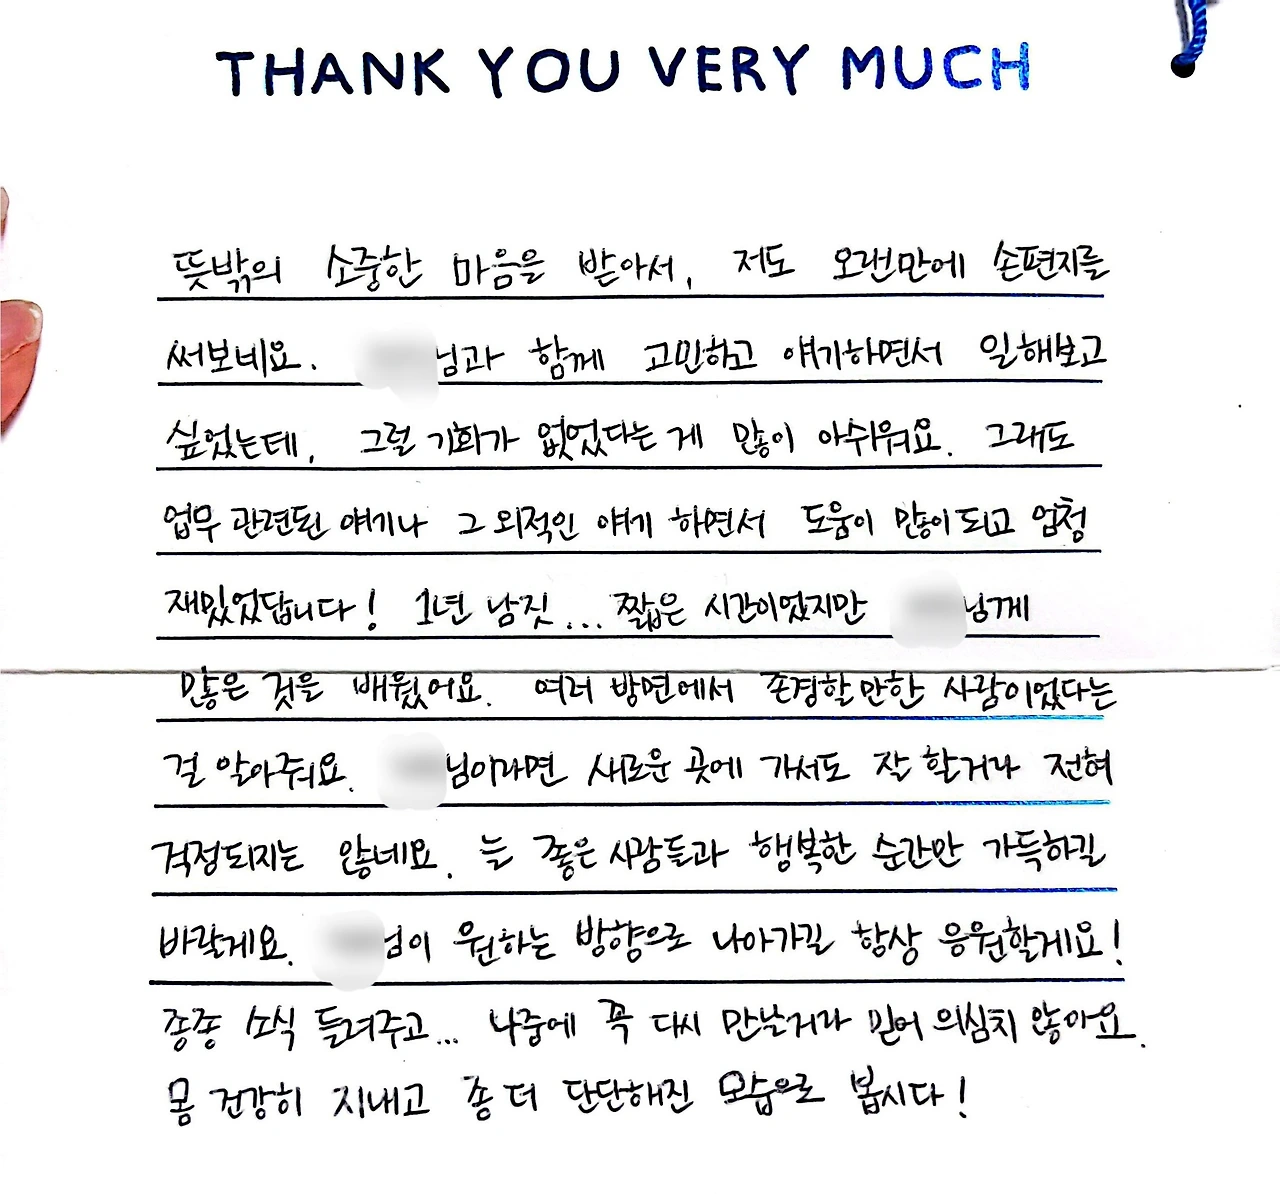 THANK YOU VERY MUCH
뜻밖의 소중한 마음을 받아서, 저도 오랜만에 손편지를
써보네요. 님과 함께 고민하고 얘기하면서 일해보고
싶었는데, 그럴 기회가 없었다는게 많이 아쉬워요. 그래도
업무 관련된 얘기나 그 외적인 얘기 하면서 도움이 많이 되고 엄청
재밌었답니다! 1년 남짓... 짧은 시간이었지만 님께
많은 것을 배웠어요. 여러 방면에서 존경할만한 사람이었다는
걸 알아줘요. 님이라면 새로운 곳에 가서도 잘 할거라 전혀
걱정되지는 않네요. 늘 좋은 사람들과 행복한 순간만 가득하길
바랄게요. 님이 원하는 방향으로 나아가길 항상 응원할게요!
종종 소식 들려주고... 나중에 꼭 다시 만날거라 믿어 의심치 않아요.
몸 건강히 지내고 좀 더 단단해진 모습으로 봅시다!